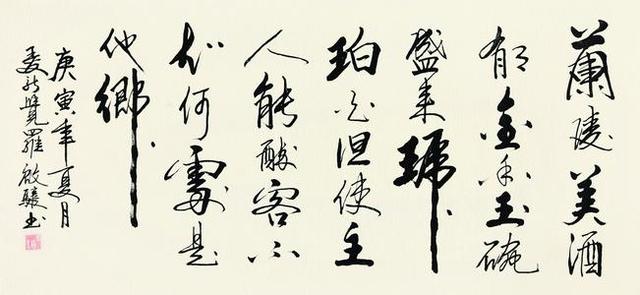 蘭陵美酒
郁金香玉碗
盛来琥
珀光但使主
人能醉客不
知何處是
他鄉
庚寅年夏月
愛新覺羅啟驤书